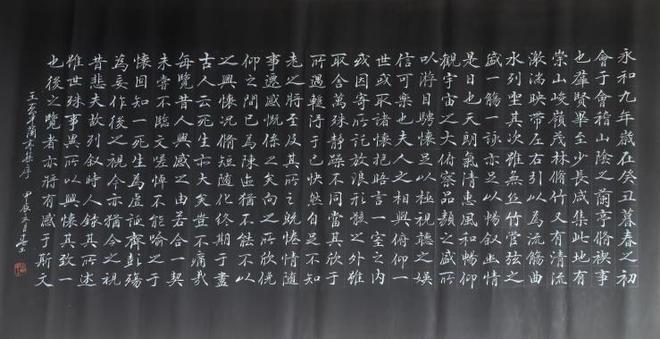 永和九年歲在癸丑暮春之初
會于會稽山陰之蘭亭脩禊事
也羣賢畢至少長咸集此地有
崇山峻嶺茂林脩竹又有清流
激湍映帶左右引以為流觴曲
水列坐其次雖無絲竹管弦之
盛一觴一詠亦足以暢敘幽情
是日也天朗氣清惠風和暢仰
觀宇宙之大俯察品類之盛所
以游目騁懷足以極視聽之娛
信可樂也夫人之相與俯仰一
世或取諸懷抱晤言一室之內
或因寄所託放浪形骸之外雖
取舍萬殊靜躁不同當其欣于
所遇輒得于己快然自足不知
老之將至及其所之既惓情隨
事遷感慨係之矣向之所欣俛
仰之間已為陳迹猶不能不以
之興懷況脩短隨化終期于盡
古人云死生亦大矣豈不痛哉
每覽昔人興感之由若合一契
未嘗不臨文嗟悼不能喻之于
懷固知一死生為虛誕齊彭殤
為妄作後之視今亦猶今之視
昔悲夫故列敘時人錄其所述
雖世殊事異所以興懷其致一
也後之覽者亦將有感于斯文
王羲之蘭亭集序 甲辰